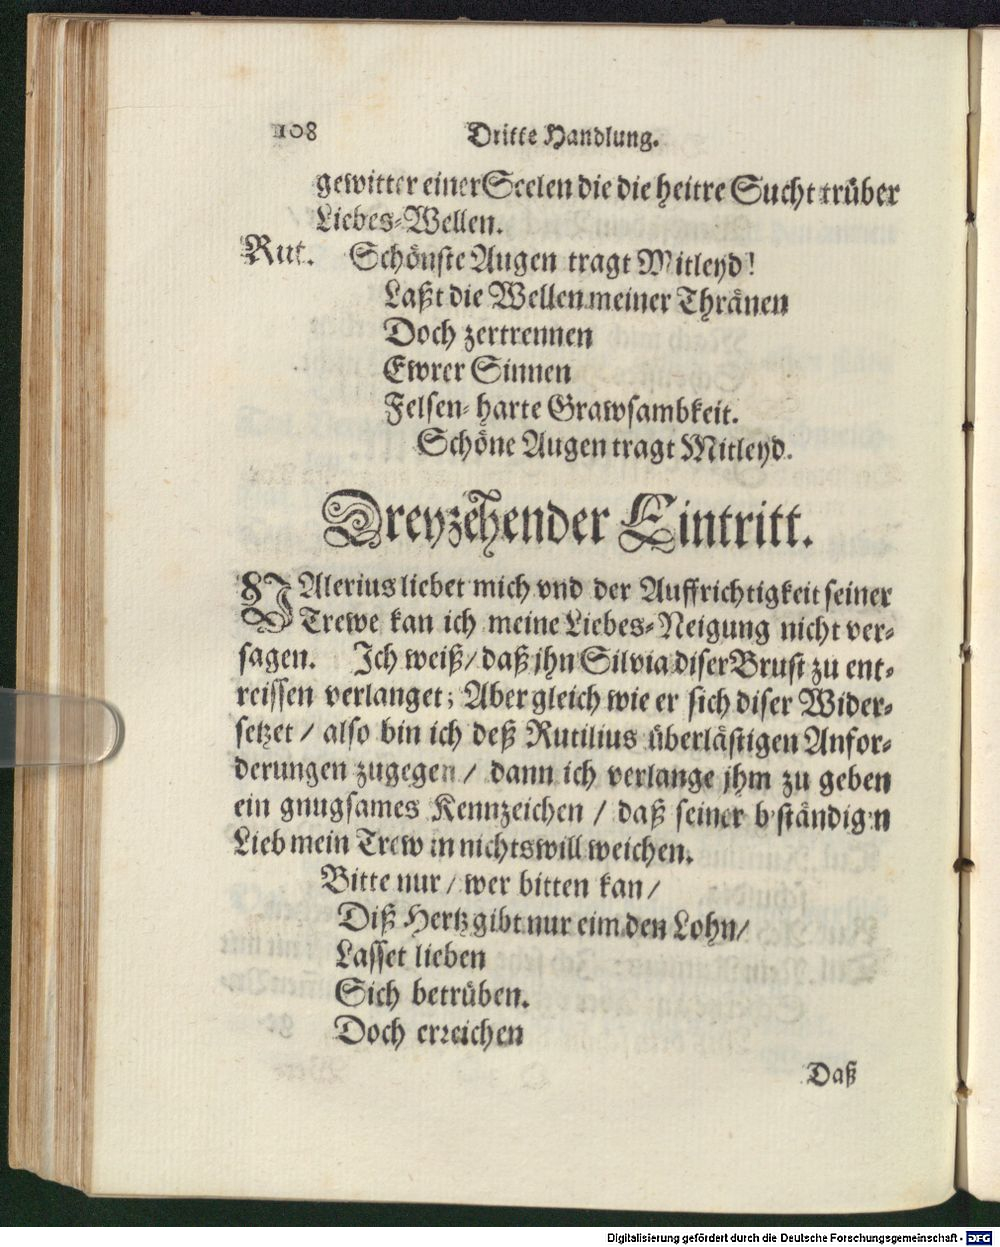 108
Dritte Handlung.
gewitter einer Seelen die die heitre Sucht trüber
Liebes-Wellen.
Rut. Schönste Augen tragt Mitleyd!
Laßt die Wellen meiner Thränen
Doch zertrennen
Ewrer Sinnen
Felsen-harte Grawsambkeit.
Schöne Augen tragt Mitleyd.
Dreyzehender Eintritt.
VAlerius liebet mich vnd der Auffrichtigkeit seiner
Trewe kan ich meine Liebes-Neigung nicht ver-
sagen. Ich weiß/ daß jhn Silvia diser Brust zu ent-
reissen verlanget; Aber gleich wie er sich diser Wider-
setzet / also bin ich deß Rutilius überlästigen Anfor-
derungen zugegen / dann ich verlange jhm zu geben
ein gnugsames Kennzeichen / daß seiner b ständig n
Lieb mein Trew in nichts will weichen.
Bitte nur / wer bitten kan /
Diß Hertz gibt nur eim den Lohn/
Lasset lieben
Sich betrüben.
Doch erreichen
Daß
Digitalisierung gefördert durch die Deutsche Forschungsgemeinschaft - DFG